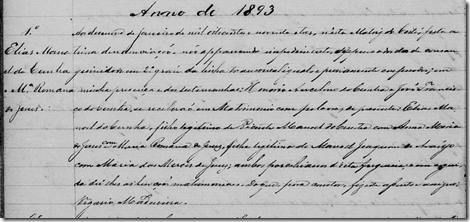 Anno de 1893
1.º
Elias Mano
el da Cunha
e
M.ª Romana
de Jesus.
Ao de janeiro de mil oitocentos e noventa e tres, nesta Matriz de feita a
denunciação, não apparecendo impedimento, dispensados de consan
guinidade em 2.º grau da linha transversal igual, e
minha presença e das testemunhas: Honorio Anselmo da Cunha e José
da Cunha, se receberão em Matrimonio por palavras de presente: Elias Ma
noel da Cunha, filho legitimo de Manoel da Cunha com Anna Maria
de Jesus com Maria Romana de Jesus, filha legitima de Manoel Joaquim de Araujo
com Maria das Mercês de Jesus; ambos parochianos desta freguesia, com aju
da dei-lhes as bençãos matrimoniaes. Do que para constar, fiz este assento e assigno.
Vigario Madureira.